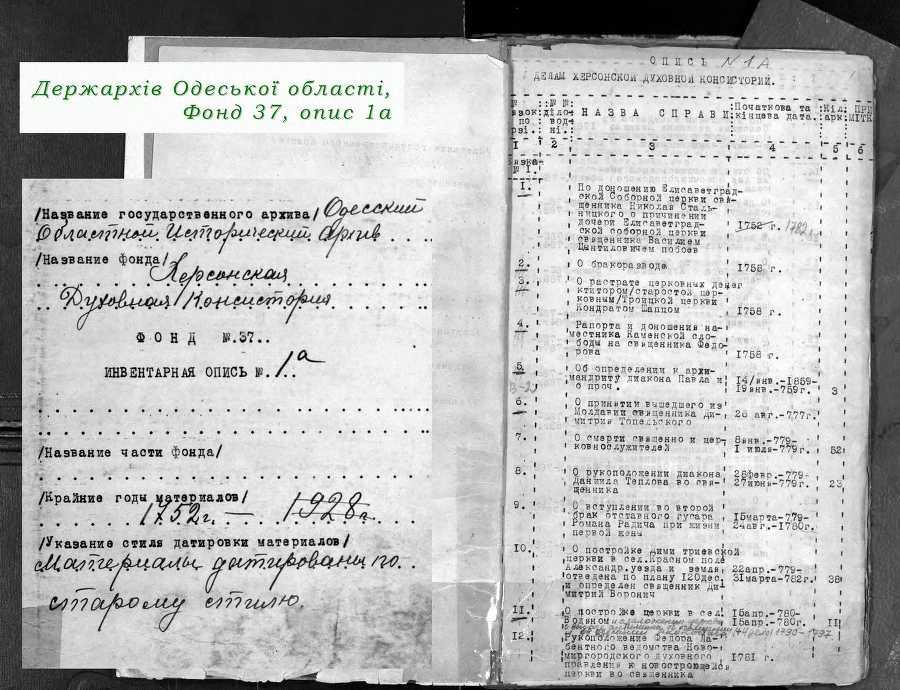 Держархів Одеської області,
Фонд 37, опис 1а
/Название государственного архива/ Одесский
Областной Исторический Архив
/Название фонда/
Херсонская
Духовная Консистория
ФОНД №.37..
ИНВЕНТАРНАЯ ОПИСЬ №. 1.а
/Название части фонда/
/Крайние годы материалов/
1752г. — 1928г.
/Указание стиля датировки материалов/
Материалы датированы по
старому стилю.
ОПИСЬ N 1А
ДЕЛАМ ХЕРСОНСКОЙ ДУХОВНОЙ КОНСИСТОРИЙ.
НАЗВА СПРАВИ
Початкова та
кінцева дата.
1 2 3 4 5 6
№ 1.
1. По доношению Елисаветград-
ской Соборной церкви свя-
щенника Николая Сталь-
ницкого о причинении
дочери Елисаветград-
ской соборной церкви
священника Василием
Цынтиловичем побоев
1752 г. 1782
2. О бракоразводе 1758 г.
3. О растрате церковных денег
ктитором/старостой цер-
ковным/Троицкой церкви
Кондратом Шапцом 1758 г.
4. Рапорта и доношения на-
местника Каменской сло-
боды на священника Федо-
рова 1758 г.
5. Об определении к архи-
мандриту диакона Павла и
с проч.
14/янв.-1859-
19янв.-759г. 3
6. О принятии вышедшего из
Молдавии священника Ди-
митрия Топельского
28 авг.-777г.
7. О смерти священно и цер-
ковнослужителей
8янв.-779-
1 июля-779г. 52
8. О рукоположении диакона
Даниила Теплова во свя-
щенника
28февр.-779-
27июня-779г. 23
9. О вступлении во второй
брак отставного гусара
Романа Радича при жизни
первой жены
15марта-779-
24авг.-1780г.
10. О постройке Дими триевской
церкви в сел.Красном поле
Александр.уезда и земля
отведена по плану 120дес.
и определен священник Ди-
митрий Воронич
22апр.-779-
31марта-782г. 38
11. О постройке церкви в сел.
Водяном
15апр.-780-
15апр.-780г. 11
1790-1797
12. Рукоположение Федора Ла-
бентного ведомства Ново-
миргородского духовного
правления к новостроющейся
церкви во священника
1781 г.